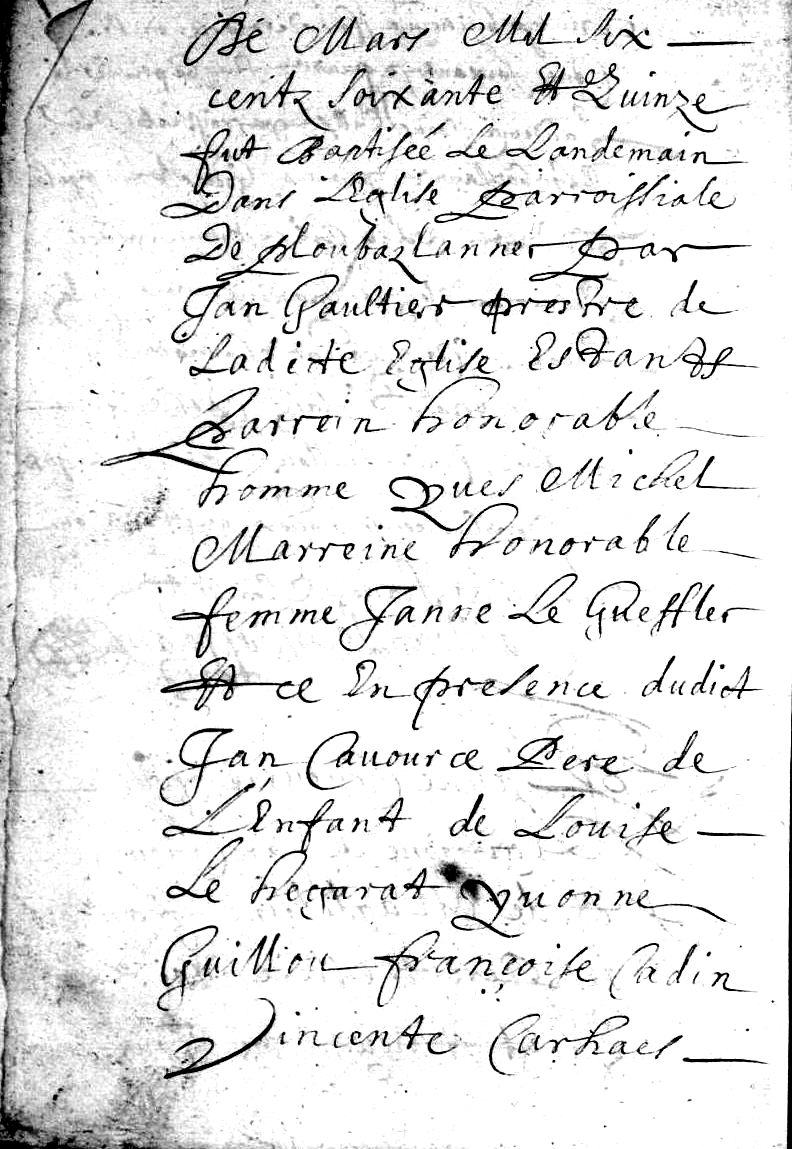 De Mars Mil Six
centz Soixante Et Quinze
fut Baptiseé Le Landemain
Dans L'Eglise Parroissiale
De Ploubazlannec Par
Jan Gaultier prestre de
Ladicte Eglise Estants
Parrein honorable
homme Yves Michel
Marreine honorable
femme Janne Le Gueffler
Et ce En presence dudict
Jan Cavource Pere de
L'Enfant de Louise
Le hegarat Yvonne
Guillou françoise Cadin
Vincente Carhaes